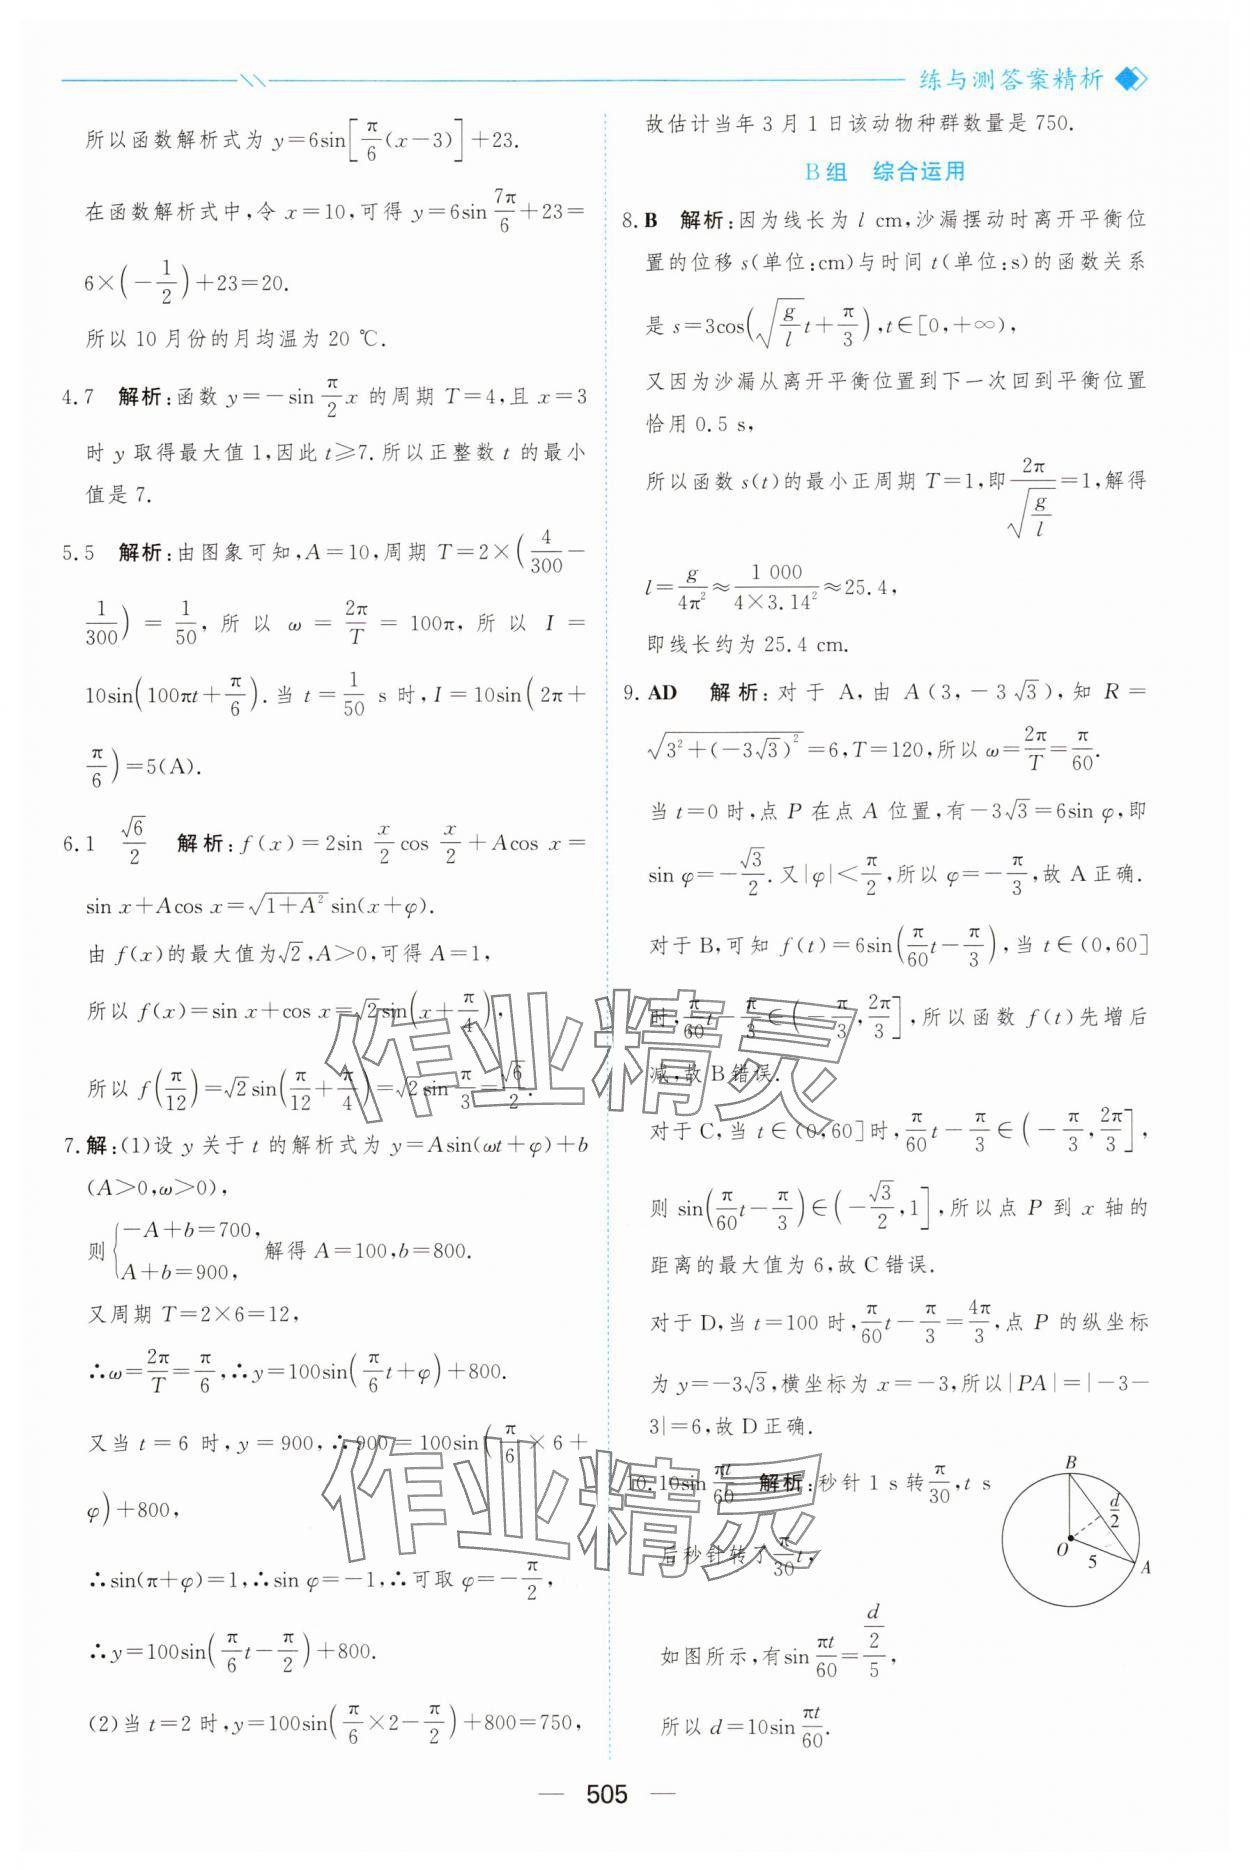 练与测答案精析
所以函数解析式为 y=6sin[π/6(x-3)]+23.
在函数解析式中,令 x=10,可得 y=6sin 7π/6+23=
6×(-1/2)+23=20.
所以 10 月份的月均温为 20 ℃.
4.7 解析:函数 y=-sin π/2 x 的周期 T=4,且 x=3
时 y 取得最大值 1,因此 t≥7.所以正整数 t 的最小
值是 7.
5.5 解析:由图象可知,A=10,周期 T=2×(4/300-
1/300)=1/50,所以 ω=2π/T=100π,所以 I=
10sin(100πt+π/6).当 t=1/50 s 时,I=10sin(2π+
π/6)=5(A).
6.1 √6/2 解析:f(x)=2sin x/2 cos x/2+Acos x=
sin x+Acos x=√(1+A²) sin(x+φ).
由 f(x)的最大值为√2,A>0,可得 A=1,
所以 f(x)=sin x+cos x=√2sin(x+π/4),
所以 f(π/12)=√2sin(π/12+π/4)=√2sin π/3=√6/2.
7.解:(1)设 y 关于 t 的解析式为 y=Asin(ωt+φ)+b
(A>0,ω>0),
则{-A+b=700, A+b=900, 解得 A=100,b=800.
又周期 T=2×6=12,
∴ω=2π/T=π/6,∴y=100sin(π/6 t+φ)+800.
又当 t=6 时,y=900,∴900=100sin(π/6×6+
φ)+800,
∴sin(π+φ)=1,∴sin φ=-1,∴可取 φ=-π/2,
∴y=100sin(π/6 t-π/2)+800.
(2)当 t=2 时,y=100sin(π/6×2-π/2)+800=750,
故估计当年 3 月 1 日该动物种群数量是 750.
B组 综合运用
8.B 解析:因为线长为 l cm,沙漏摆动时离开平衡位
置的位移 s(单位:cm)与时间 t(单位:s)的函数关系
是 s=3cos(√(g/l) t+π/3),t∈[0,+∞),
又因为沙漏从离开平衡位置到下一次回到平衡位置
恰用 0.5 s,
所以函数 s(t)的最小正周期 T=1,即 2π/√(g/l)=1,解得
l=g/4π²≈1 000/(4×3.14²)≈25.4,
即线长约为 25.4 cm.
9.AD 解析:对于 A,由 A(3,-3√3),知 R=
√(3²+(-3√3)²)=6,T=120,所以 ω=2π/T=π/60.
当 t=0 时,点 P 在点 A 位置,有-3√3=6sin φ,即
sin φ=-√3/2.又|φ|<π/2,所以 φ=-π/3,故 A 正确.
对于 B,可知 f(t)=6sin(π/60 t-π/3),当 t∈(0,60]
时,π/60 t-π/3∈(-π/3,2π/3],所以函数 f(t)先增后
减,故 B 错误.
对于 C,当 t∈(0,60]时,π/60 t-π/3∈(-π/3,2π/3],
则 sin(π/60 t-π/3)∈(-√3/2,1],所以点 P 到 x 轴的
距离的最大值为 6,故 C 错误.
对于 D,当 t=100 时,π/60 t-π/3=4π/3,点 P 的纵坐标
为 y=-3√3,横坐标为 x=-3,所以|PA|=|-3-
3|=6,故 D 正确.
10.10sin πt/60 解析:秒针 1 s 转 π/30,t s
后秒针转了 π/30 t,
如图所示,有 sin πt/60=(d/2)/5,
所以 d=10sin πt/60.
B
d/2
O
5
A
作业精灵
作业精灵
— 505 —